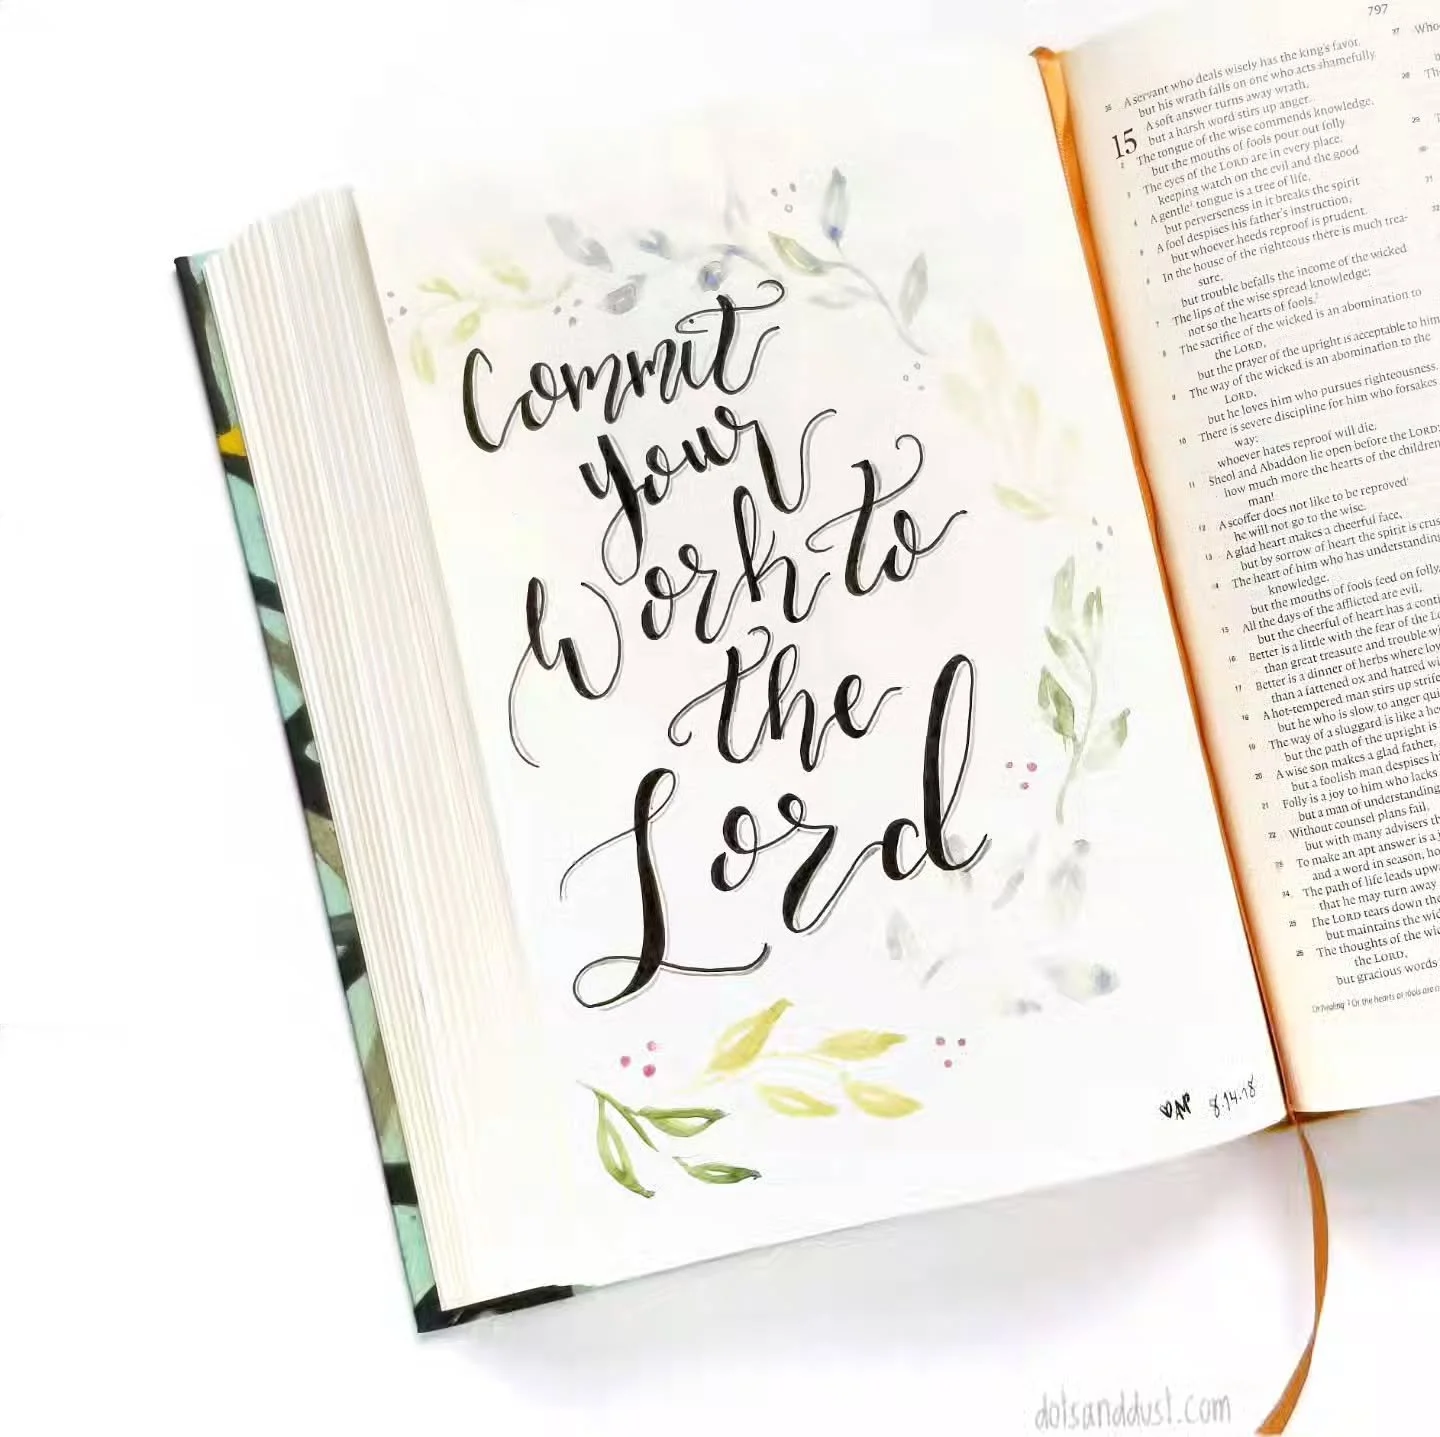 Commit
your
Work to
the
Lord
AP 8.14.18
797
35 A servant who deals wisely has the king's favor,
but his wrath falls on one who acts shamefully.
15 A soft answer turns away wrath,
but a harsh word stirs up anger.
2 The tongue of the wise commends knowledge,
but the mouths of fools pour out folly
3 The eyes of the LORD are in every place,
keeping watch on the evil and the good
4 A gentle¹ tongue is a tree of life,
but perverseness in it breaks the spirit
5 A fool despises his father's instruction,
but whoever heeds reproof is prudent.
6 In the house of the righteous there is much trea-
sure,
but trouble befalls the income of the wicked
7 The lips of the wise spread knowledge;
not so the hearts of fools.²
8 The sacrifice of the wicked is an abomination to
the LORD,
but the prayer of the upright is acceptable to him
9 The way of the wicked is an abomination to the
LORD,
but he loves him who pursues righteousness.
10 There is severe discipline for him who forsakes
way;
whoever hates reproof will die.
11 Sheol and Abaddon lie open before the LORD;
how much more the hearts of the children
man!
12 A scoffer does not like to be reproved
he will not go to the wise.
13 A glad heart makes a cheerful face,
but by sorrow of heart the spirit is crus
14 The heart of him who has understanding
knowledge,
but the mouths of fools feed on folly,
15 All the days of the afflicted are evil,
but the cheerful of heart has a conti
16 Better is a little with the fear of the Lo
than great treasure and trouble wi
17 Better is a dinner of herbs where lov
than a fattened ox and hatred wi
18 A hot-tempered man stirs up strife
but he who is slow to anger qui
19 The way of a sluggard is like a he
but the path of the upright is
20 A wise son makes a glad father,
but a foolish man despises hi
21 Folly is a joy to him who lacks
but a man of understanding
22 Without counsel plans fail,
but with many advisers th
23 To make an apt answer is a j
and a word in season, ho
24 The path of life leads upwa
that he may turn away
25 The LORD tears down the
but maintains the wid
26 The thoughts of the wic
the LORD,
but gracious words
Or healing ² Or the hearts of fools are
27 Who
28 Th
29
31
32
dotsanddust.com